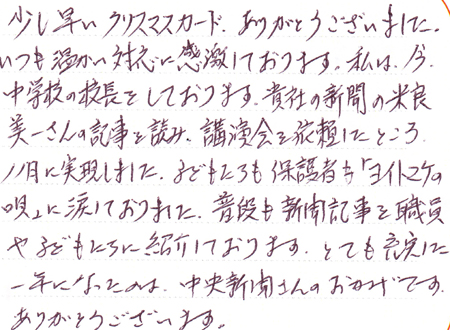 少し早いクリスマスカード、ありがとうございました。
いつも温かい対応に感激しております。私は、今、
中学校の校長をしております。貴社の新聞の米良
美一さんの記事を読み、講演会を依頼したところ、
11月に実現しました。子どもたちも保護者も「ヨイトマケの
唄」に涙しておりました。普段も新聞記事を職員
や子どもたちに紹介しております。とても充実した
一年になったのは、中央新聞さんのおかげです。
ありがとうございます。